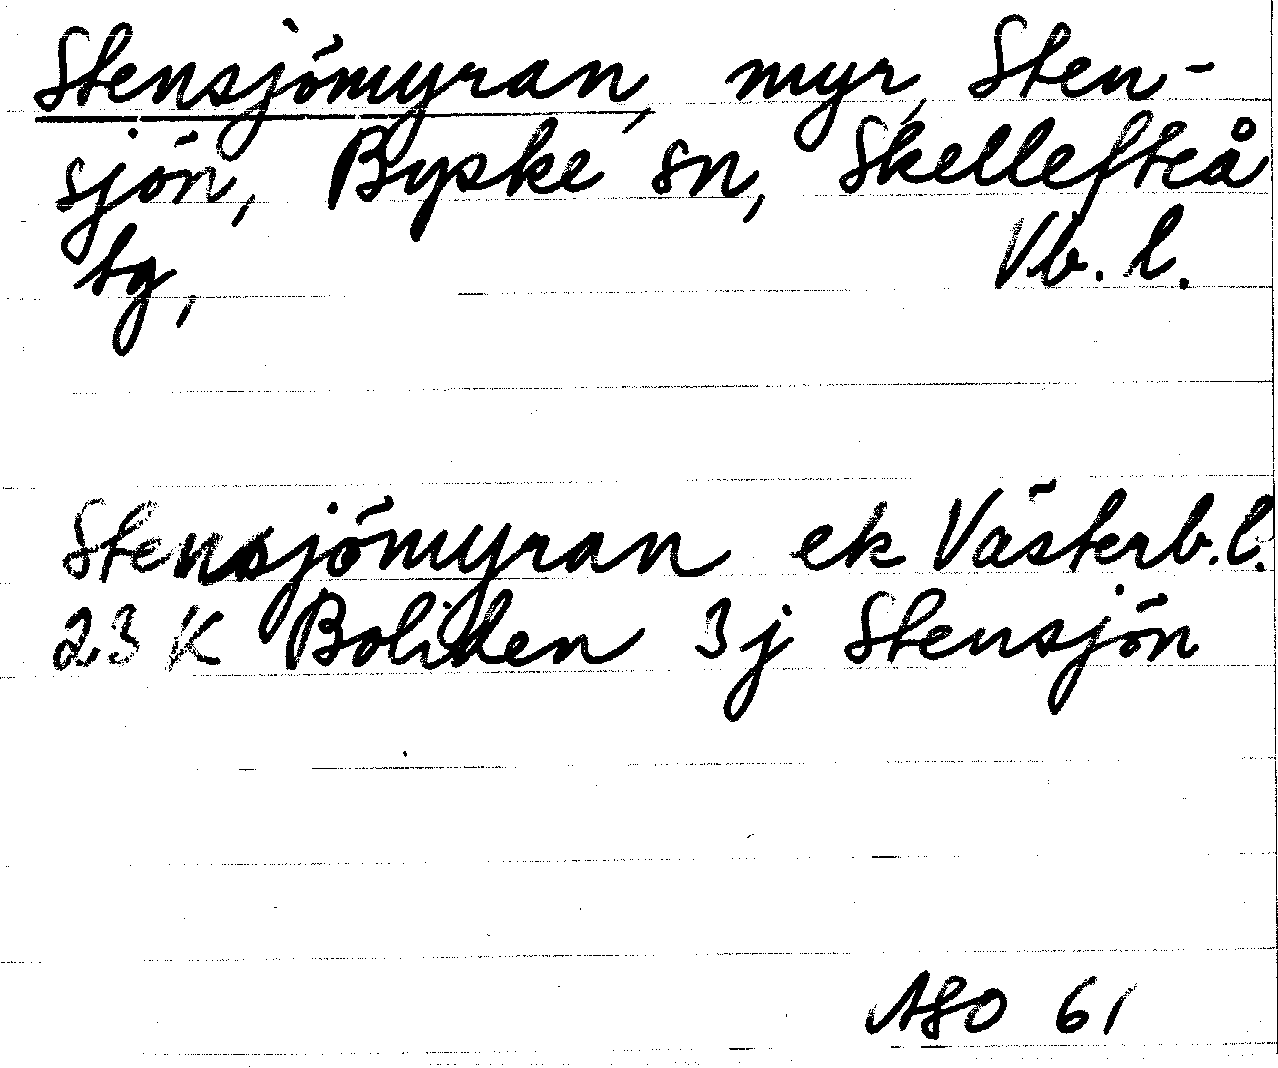 Stensjömyran, myr, Sten-
sjön, Byske sn, Skellefteå
tg, Vb. l.
Stensjömyran ek Västerb.l.
23 K Boliden 3j Stensjön
ASO 61